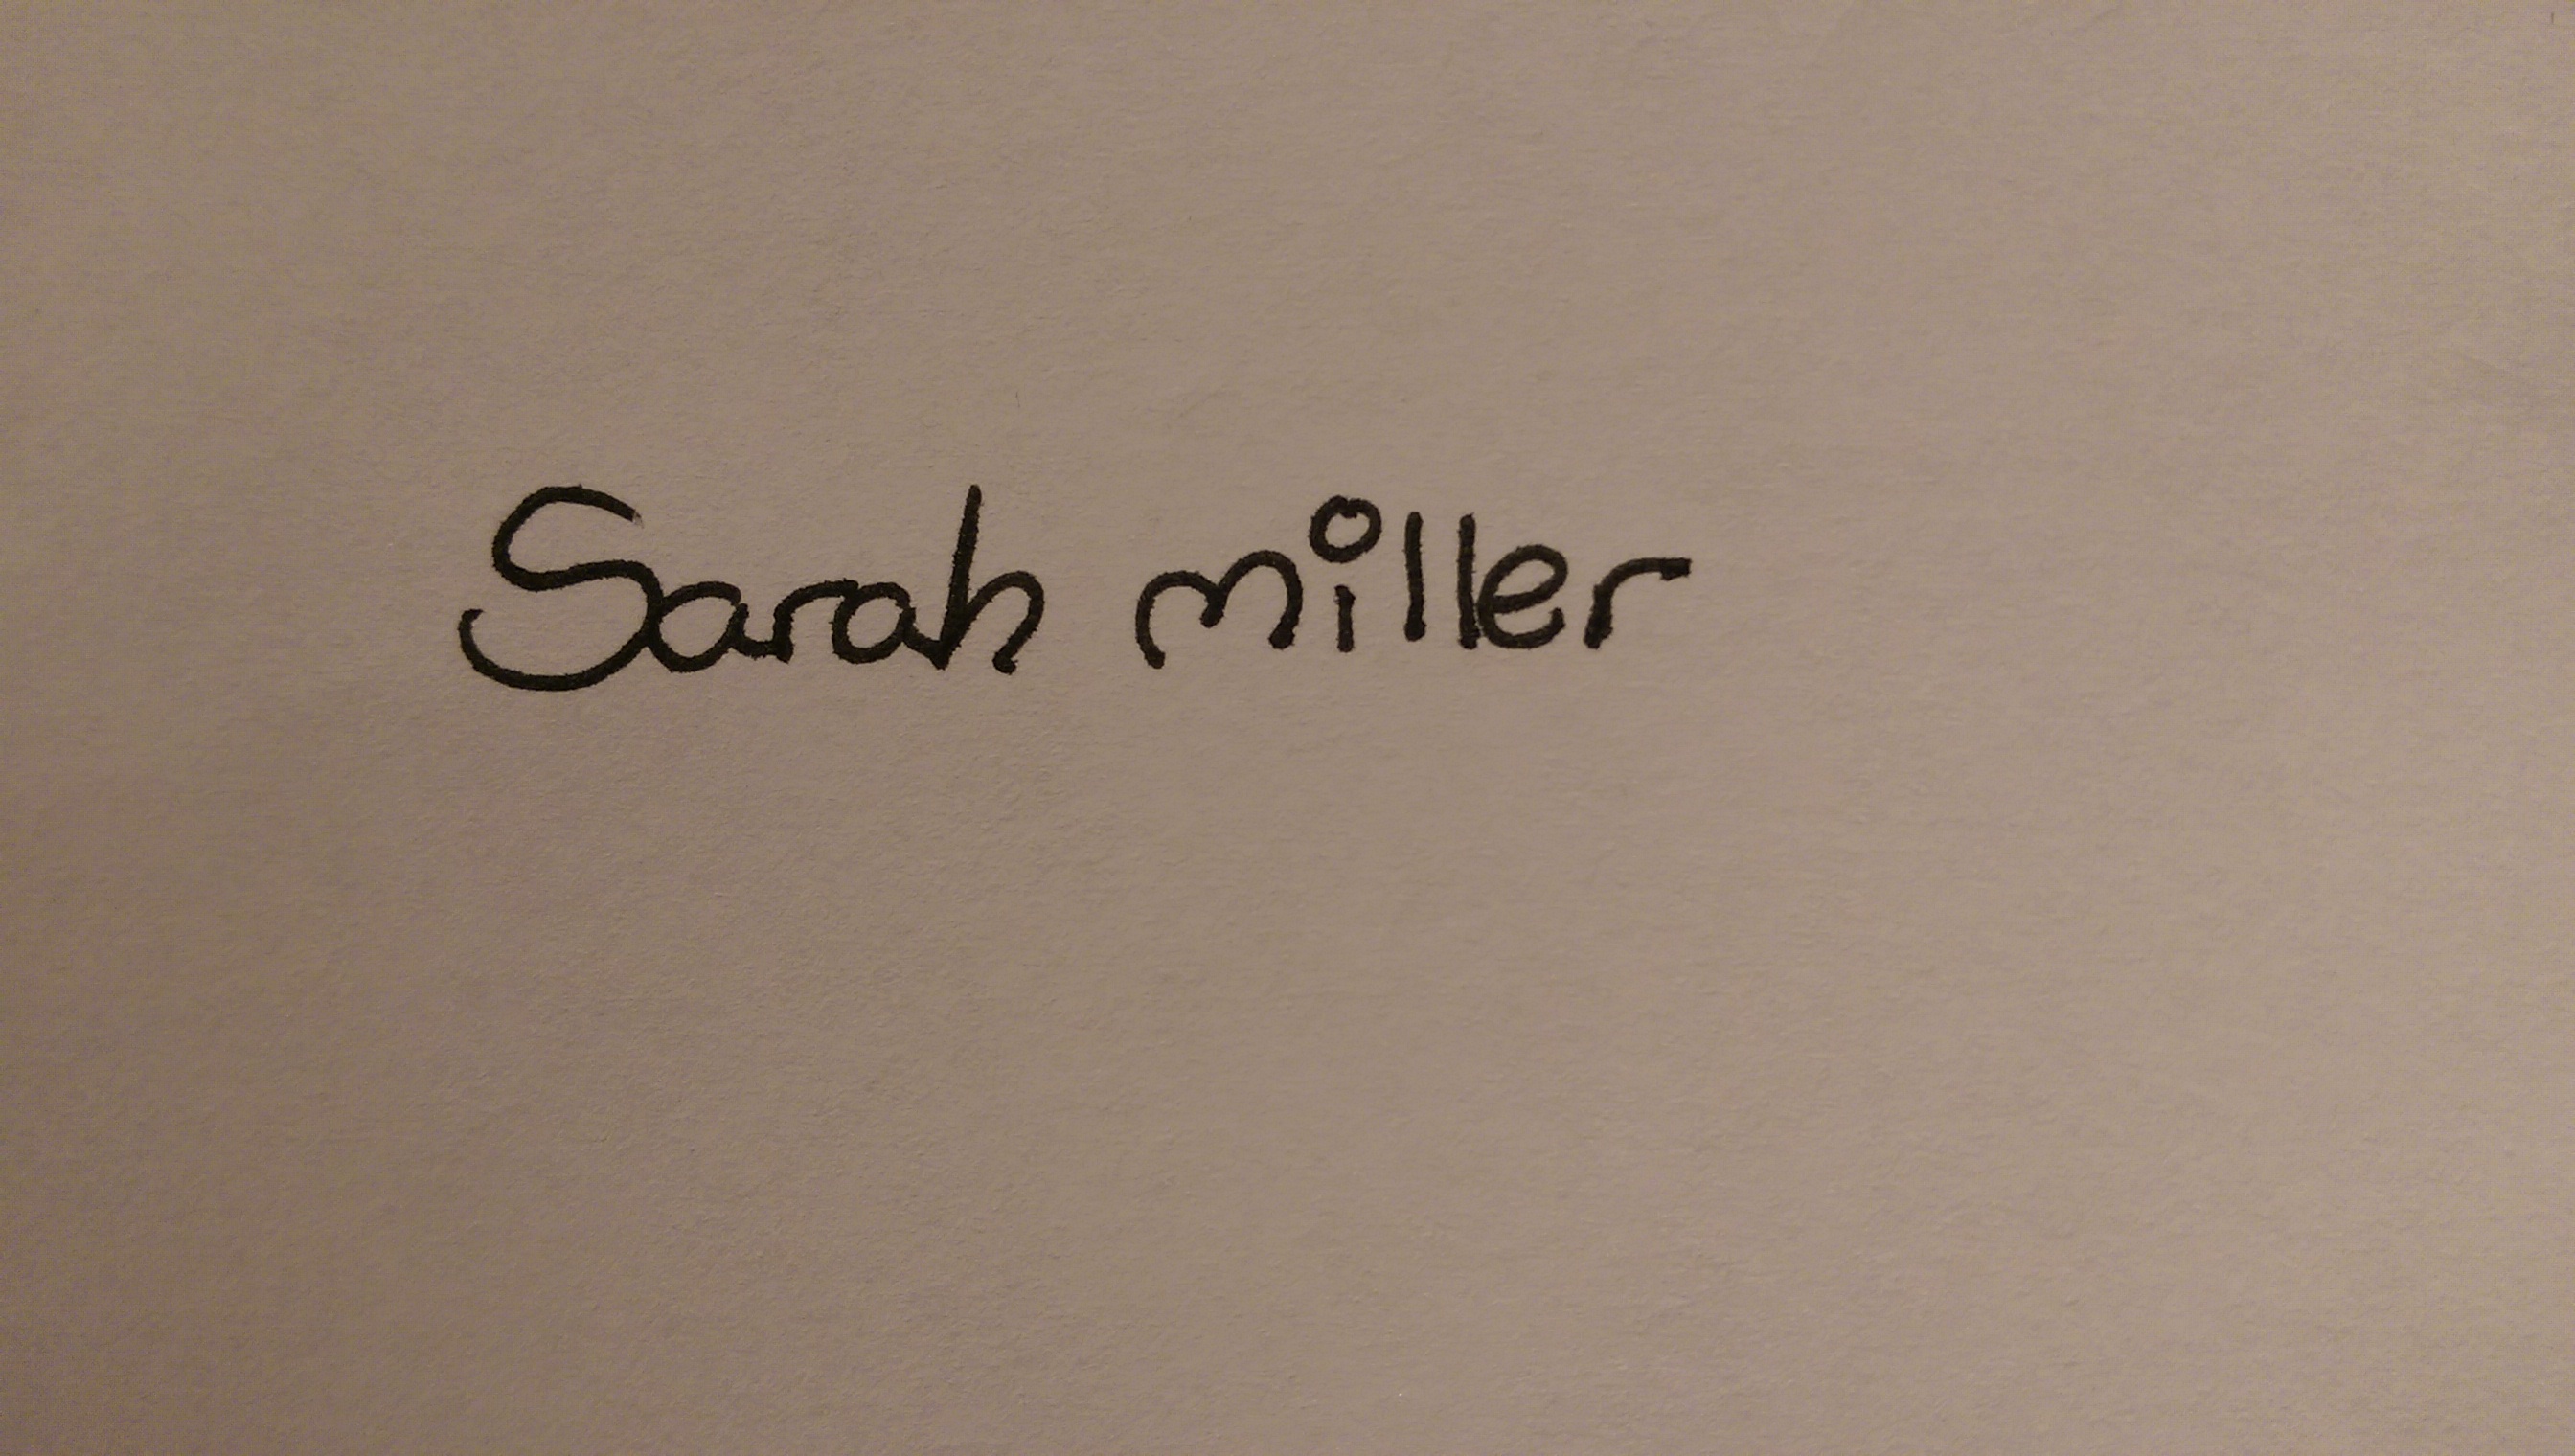 Sarah miller